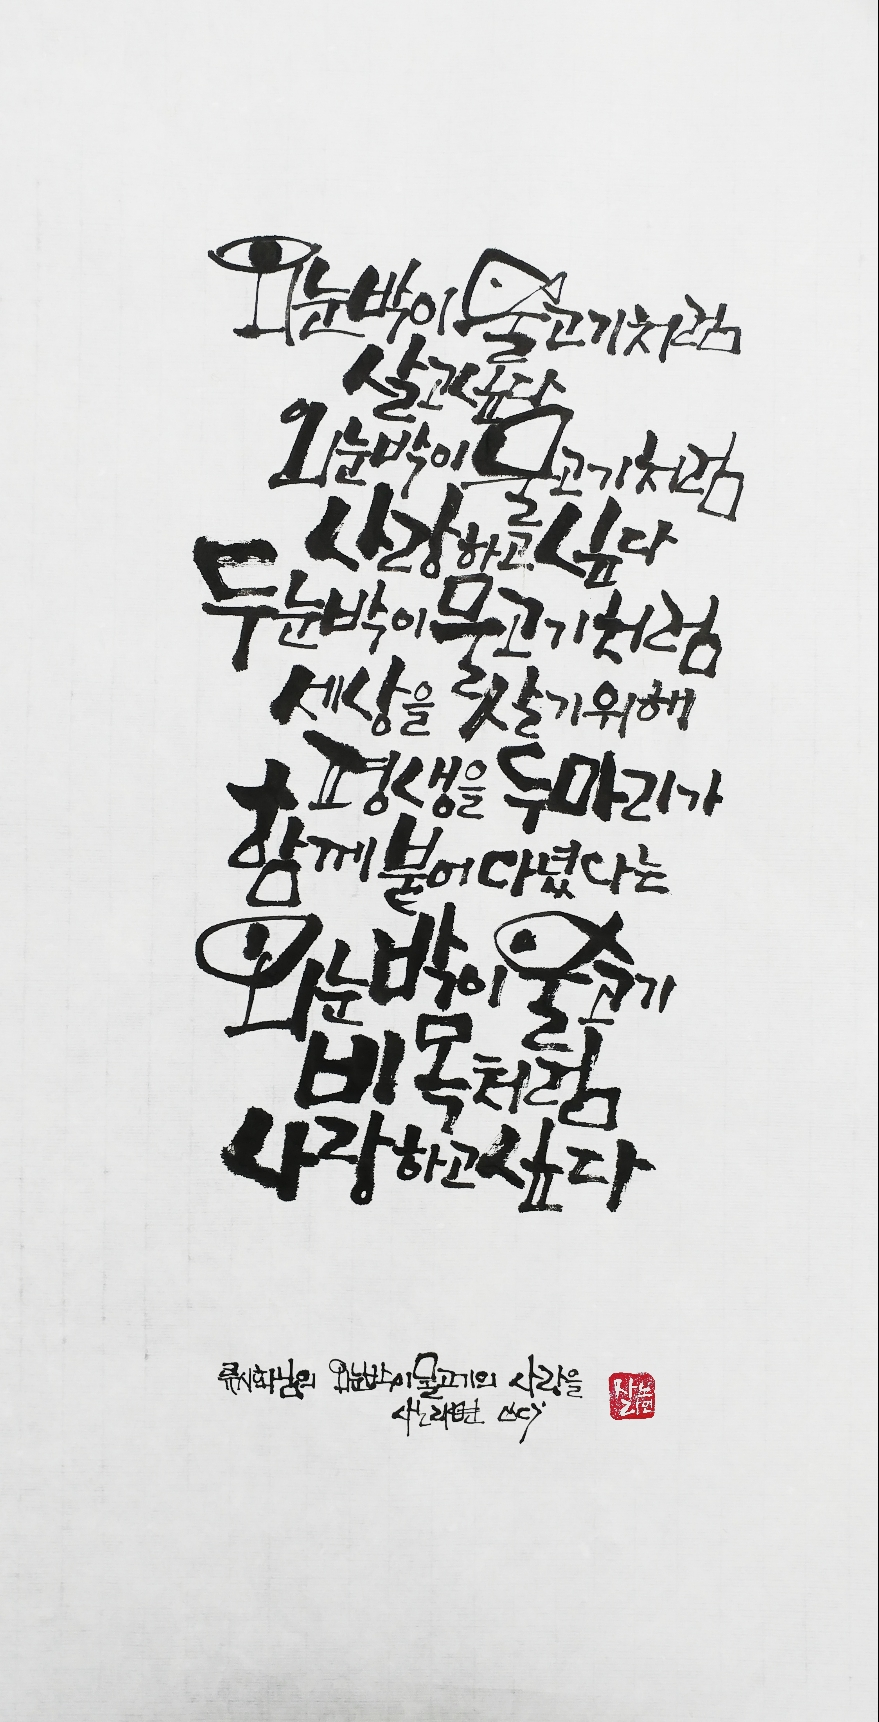 외눈박이 물고기처럼
살고 싶다
외눈박이 물고기처럼
사랑하고 싶다
두눈박이 물고기처럼
세상을 살기 위해
평생을 두마리가
함께 붙어 다녔다는
외눈박이 물고기
비목처럼
사랑하고 싶다
류시화님의 외눈박이 물고기의 사랑을
쓰다